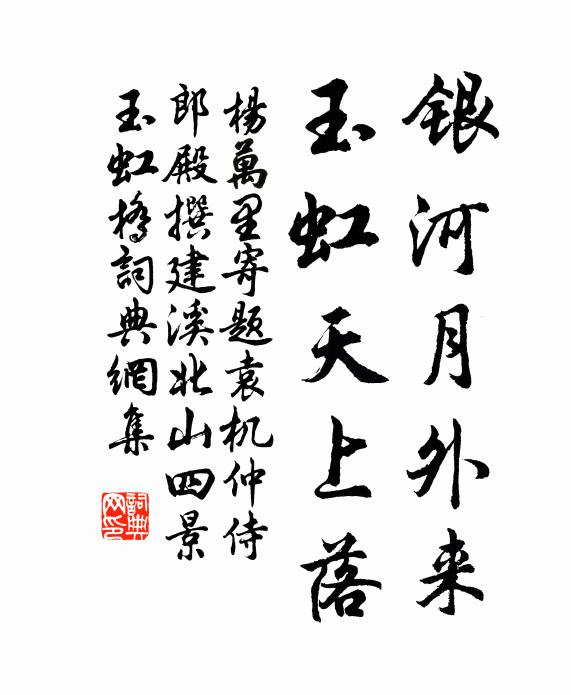 银河月外来
玉虹天上落
楊萬里寄题袁机仲侍
郎殿撰建溪北山四景
玉虹橋詞典網集
詞典网印